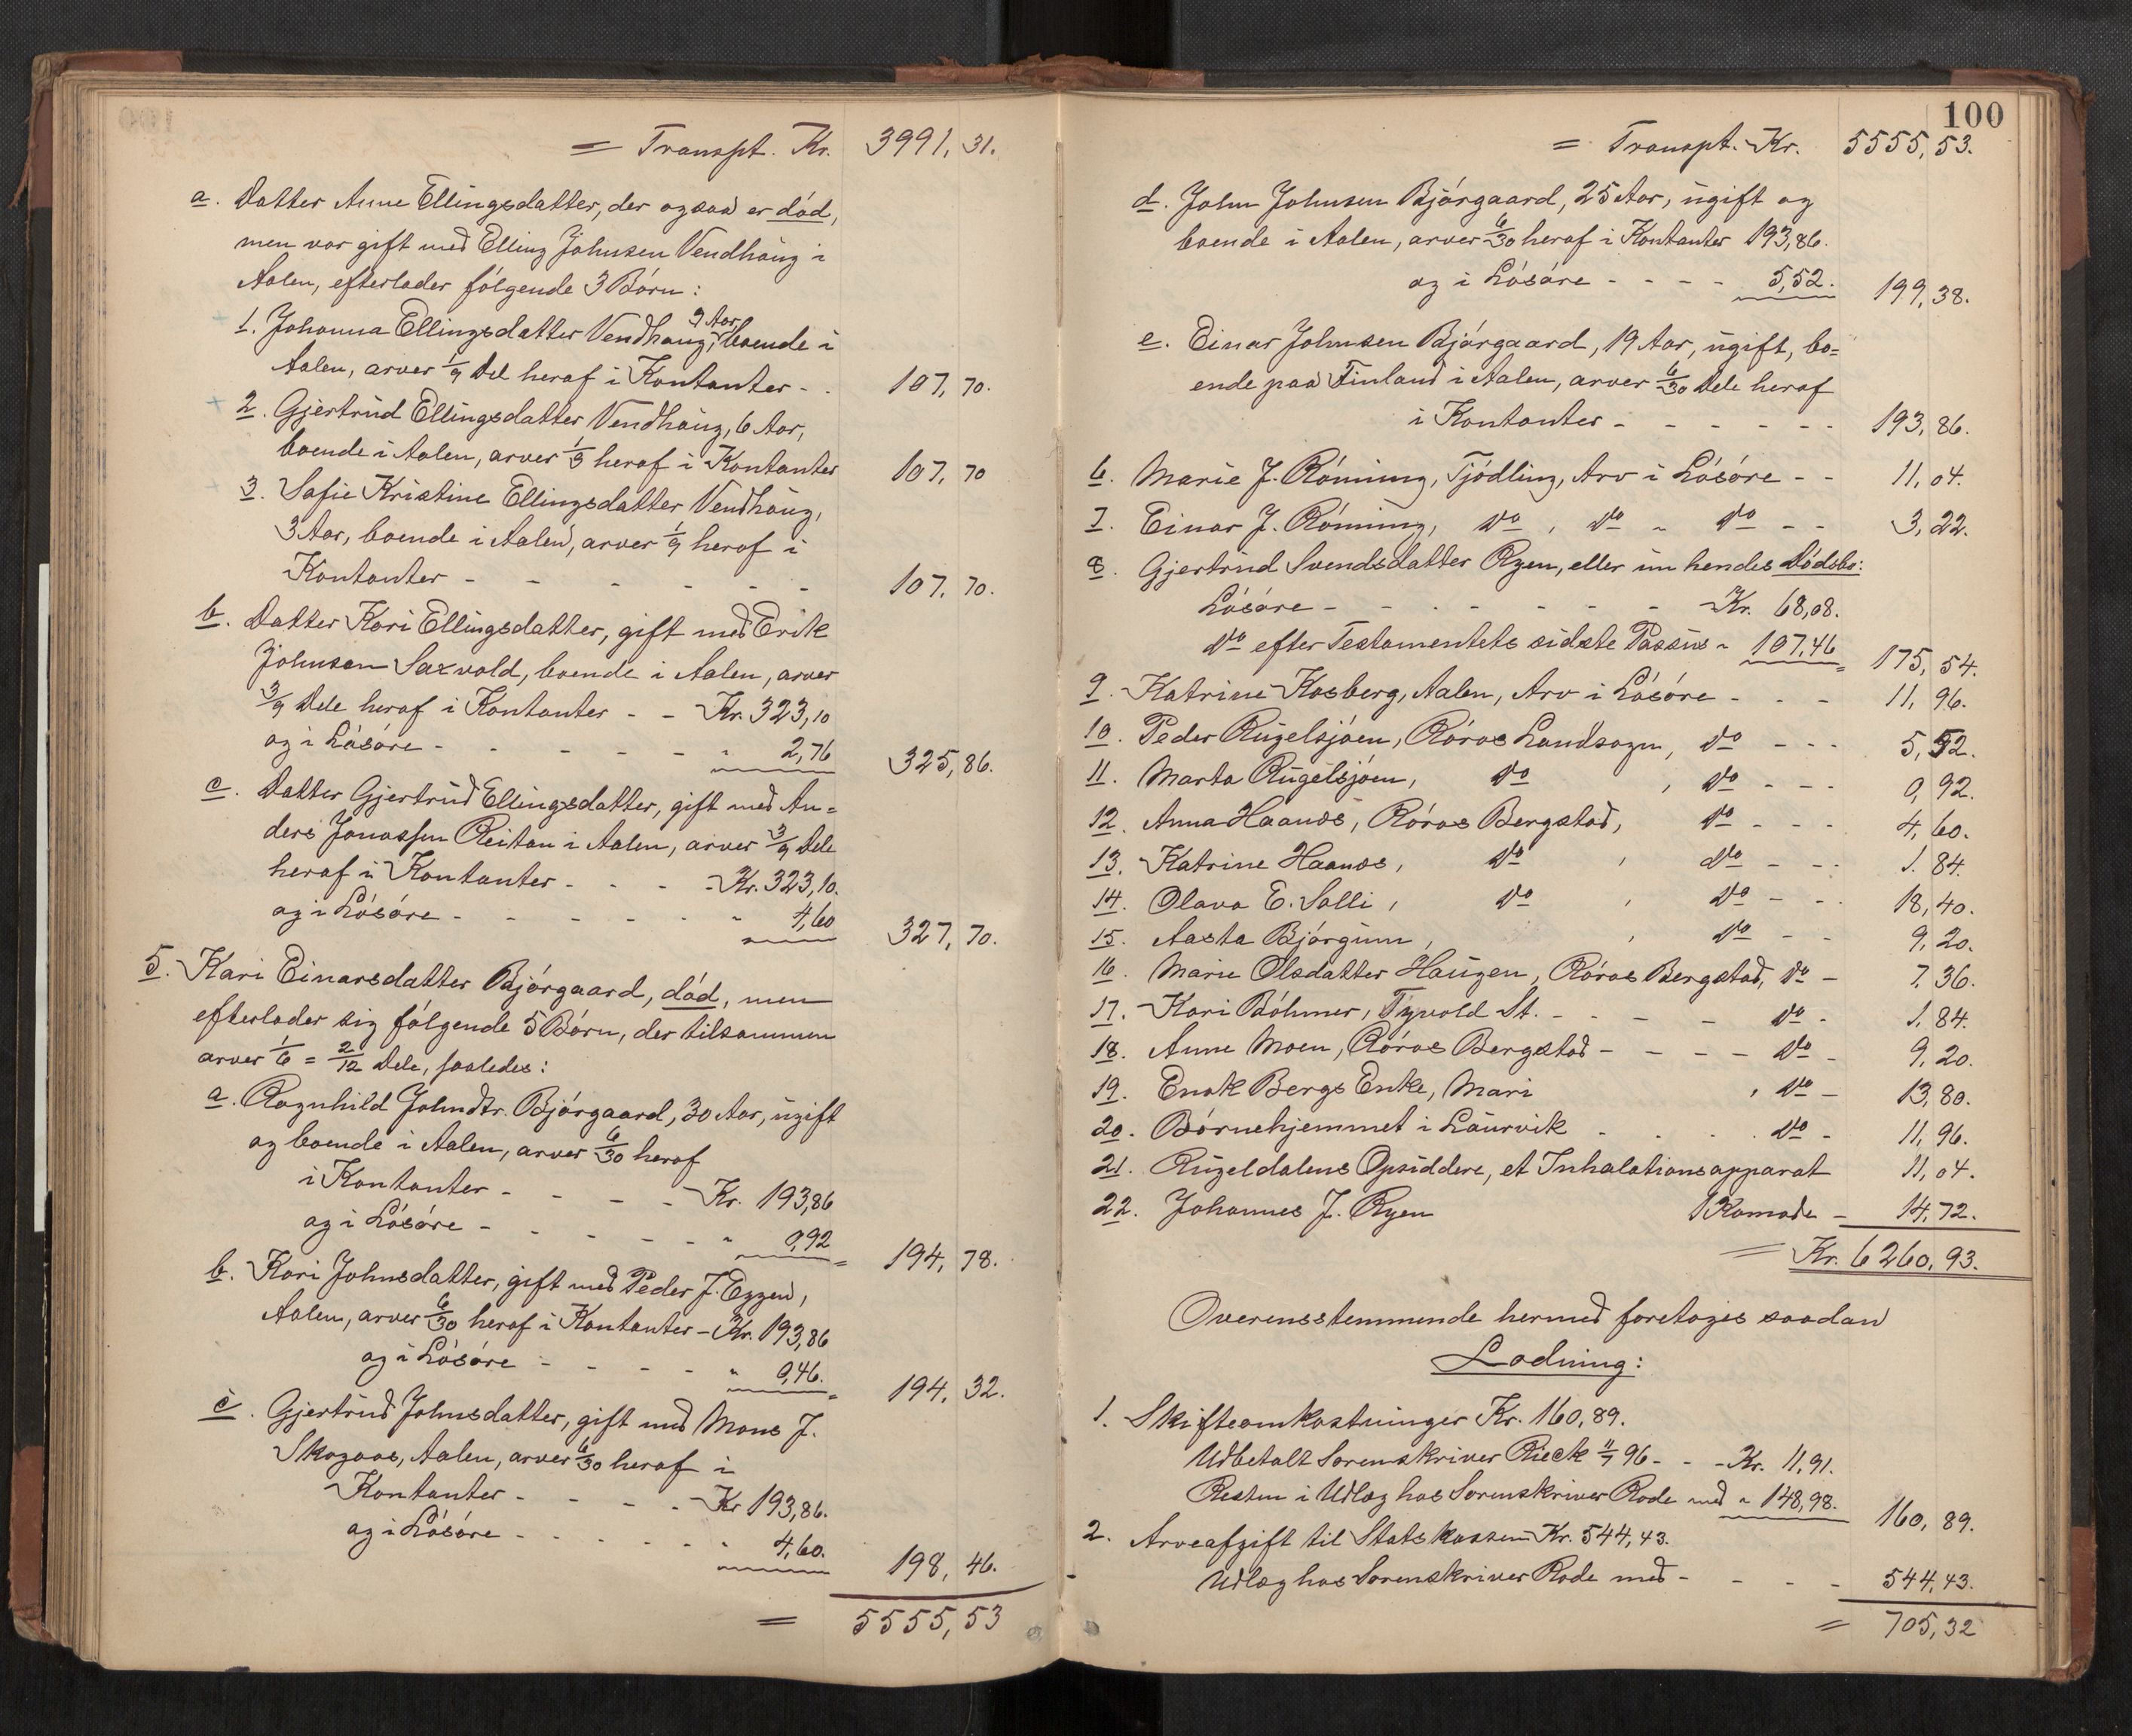 = Transpt. Kr. 3991, 31.
a. Datter Anne Ellingsdatter, der ogsaa er död,
men var gift med Elling Johnsen Vendhaug i
Aalen, efterlader fölgende 3 Börn:
1. Johanna Ellingsdatter Vendhaug, 9 Aar, boende i
Aalen, arver 1/9 Del heraf i Kontanter - - 107, 70.
2. Gjertrud Ellingsdatter Vendhaug, 6 Aar,
boende i Aalen, arver 1/9 heraf i Kontanter 107, 70
3. Sofie Kristine Ellingsdatter Vendhaug,
3 Aar, boende i Aalen, arver 1/9 heraf i
Kontanter - - - - - - 107, 70.
b. Datter Kari Ellingsdatter, gift med Erik
Johnsen Saxvold, boende i Aalen, arver
3/9 Dele heraf i Kontanter - - Kr. 323,10
og i Lösöre - - - - - - " 2,76 325, 86.
c. Datter Gjertrud Ellingsdatter, gift med An=
ders Jonassen Reitan i Aalen, arver 3/9 Dele
heraf i Kontanter - - - - Kr. 323,10.
og i Lösöre - - - - - - " 4,60 327, 70.
5. Kari Einarsdatter Bjórgaard, död, men
efterlader sig fölgende 5 Börn, der tilsammen
arver 1/6 = 2/12 Dele, saaledes:
a. Ragnhild Johndtr. Bjórgaard, 30 Aar, ugift
og boende i Aalen, arver 6/30 heraf
i Kontanter - - - - Kr. 193,86
og i Lösöre - - - - - " 0,92 = 194, 78.
b. Kari Johnsdatter, gift med Peder J. Eggen,
Aalen, arver 6/30 heraf i Kontanter - Kr. 193,86
og i Lösöre - - - - " 0,46. = 194, 32.
c. Gjertrud Johnsdatter, gift med Mons J.
Skogaas, Aalen, arver 6/30 heraf i
Kontanter - - - - Kr 193,86.
og i Lösöre - - - - - " 4,60. 198, 46.
= 5555, 53
100
= Transpt. Kr. 5555, 53.
d. John Johnsen Bjórgaard, 25 Aar, ugift og
boende i Aalen, arver 6/30 heraf i Kontanter 193,86.
og i Lösöre - - - - 5,52. 199, 38.
e. Einar Johnsen Bjórgaard, 19 Aar, ugift, bo=
ende paa Finland i Aalen, arver 6/30 Dele heraf
i Kontanter - - - - - - 193, 86.
6. Marie J. Röning, Tjödling, Arv i Lösöre - - 11, 04.
7. Einar J. Röning, do, do " do - - 3, 22.
8. Gjertrud Svendsdatter Ryen, eller nu hendes Dödsbo:
Lösöre - - - - - - Kr. 68,08.
do efter Testamentets sidste Passus " 107,46 = 175, 54.
9. Katrine Kosberg, Aalen, Arv i Lösöre - - - 11, 96.
10. Peder Rugelsjöen, Röros Landsogn, do - - - 5, 52.
11. Marta Rugelsjöen, do, do - - - 0, 92.
12. Anna Haanes, Röros Bergstad, do - - - 4, 60.
13. Katrine Haanes, do, do - - - 1. 84.
14. Olava E. Solli, do, do - - - 18, 40.
15. Aasta Bjórgum, , do - - 9, 20.
16. Marie Olsdatter Haugen, Röros Bergstad, do - 7, 36.
17. Kari Böhmer, Tyvold St. - - - - do - 1, 84.
18. Anne Moen, Röros Bergstad - - - - do - 9, 20.
19. Enok Bergs Enke, Mari , do - 13, 80.
20. Börnehjemmet i Laurvik - - - - do - 11, 96.
21. Rugeldalens Opsiddere, et Inhalationsapparat 11, 04.
22. Johannes J. Ryen 1 Komode - 14, 72.
= Kr. 6260, 93.
Overensstemmende hermed foretages saadan
Lodning:
1. Skifteomkostninger Kr. 160,89.
Udbetalt Sorenskriver Rieck 11/7 96 - - - Kr. 11,91.
Resten i Udlæg hos Sorenskriver Rode med " 148,98. 160, 89.
2. Arveafgift til Statskassen Kr. 544,43.
Udlæg hos Sorenskriver Rode med - - - - 544, 43.
= 705, 32